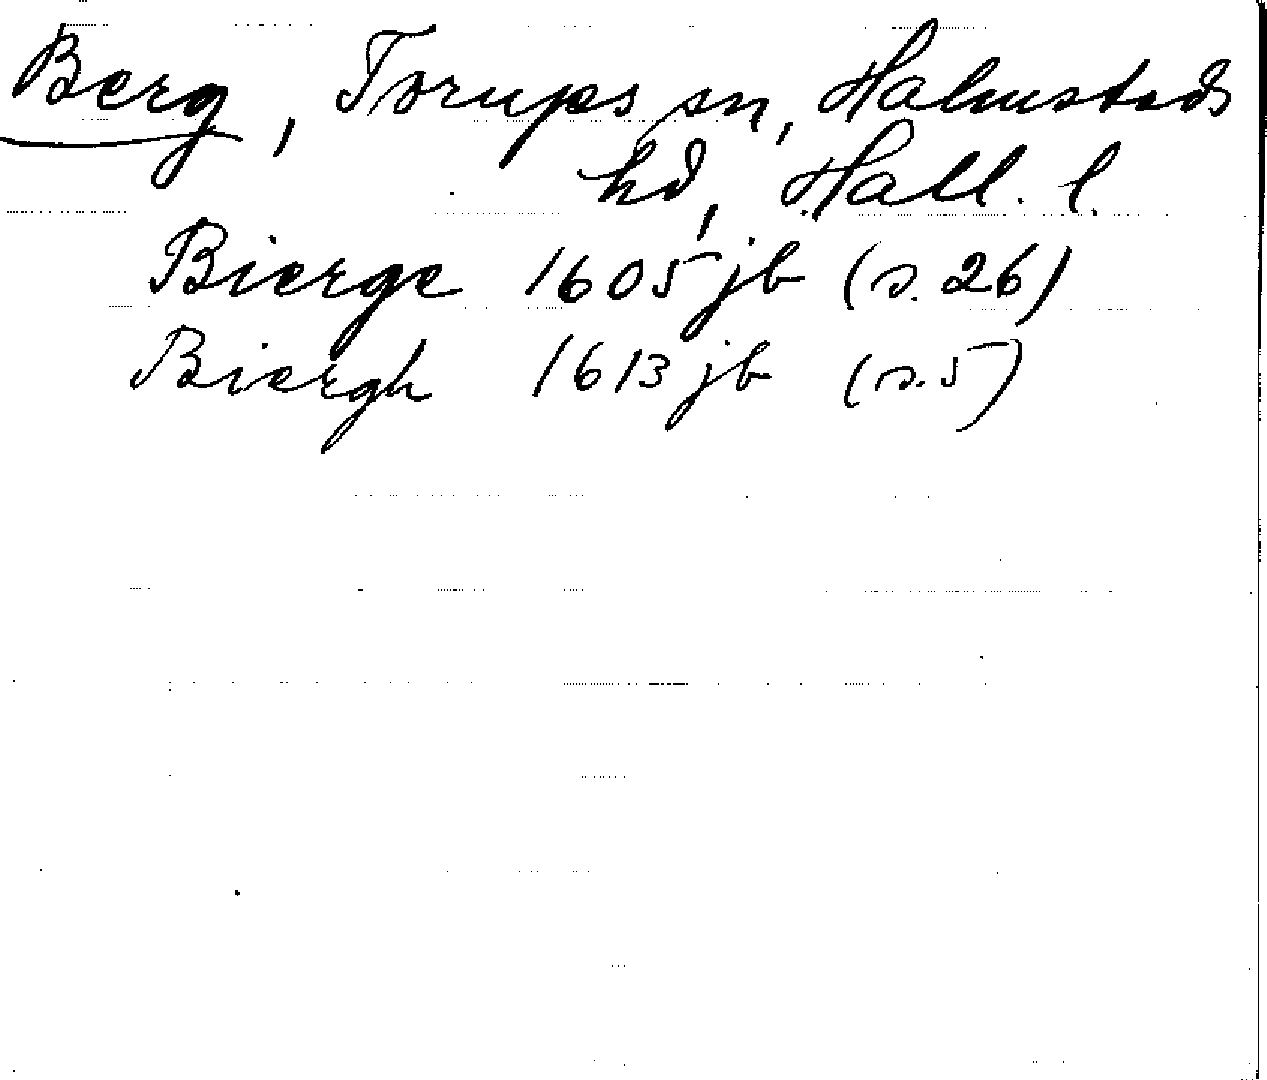 Berg, Torups sn, Halmstads
hd, Hall. l.
Bierge 1605 jb (s. 26)
Biergh 1613 jb (s. 5)